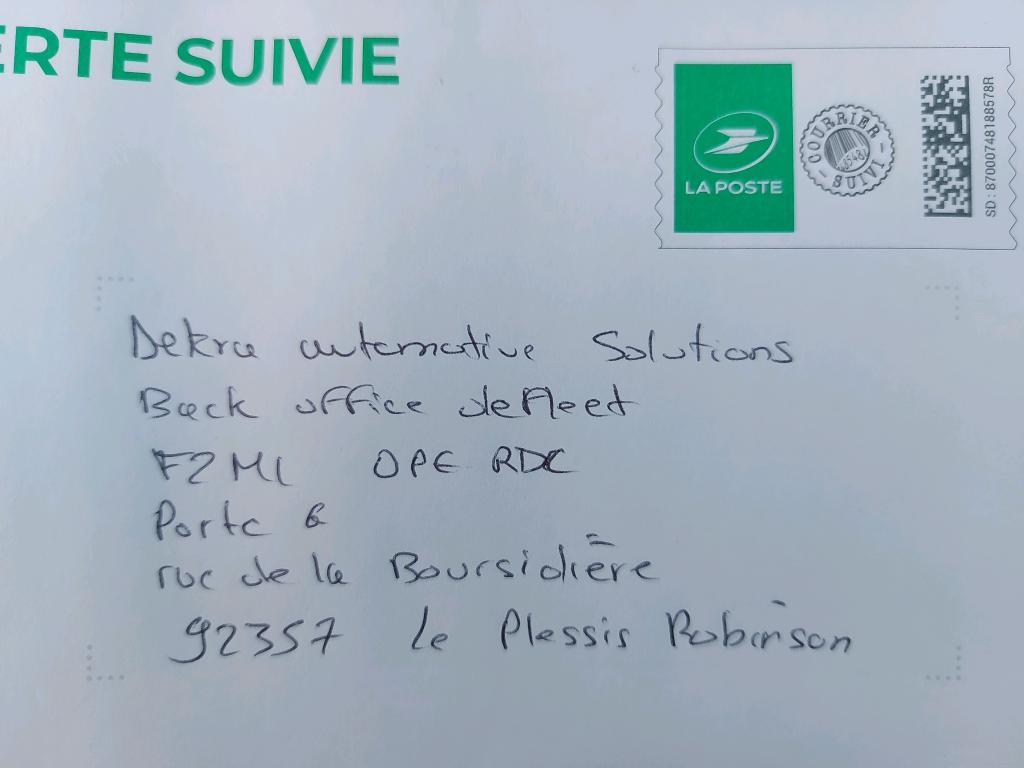 ERTE SUIVIE
LA POSTE
COURRIER
SUIVI
SD : 87000748188578R
Dekra automotive Solutions
Back office defleet
F2ML OPE RDC
Porte 6
rue de la Boursidière
92357 le Plessis Robinson